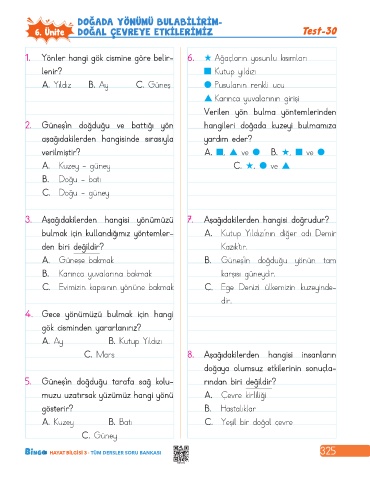 6. Ünite
DOĞADA YÖNÜMÜ BULABİLİRİM-
DOĞAL ÇEVREYE ETKİLERİMİZ
Test-30
1. Yönler hangi gök cismine göre belir-
lenir?
A. Yıldız B. Ay C. Güneş
2. Güneşin doğduğu ve battığı yön
aşağıdakilerden hangisinde sırasıyla
verilmiştir?
A. Kuzey - güney
B. Doğu - batı
C. Doğu - güney
3. Aşağıdakilerden hangisi yönümüzü
bulmak için kullandığımız yöntemler-
den biri değildir?
A. Güneşe bakmak
B. Karınca yuvalarına bakmak
C. Evimizin kapısının yönüne bakmak
4. Gece yönümüzü bulmak için hangi
gök cisminden yararlanırız?
A. Ay B. Kutup Yıldızı
C. Mars
5. Güneşin doğduğu tarafa sağ kolu-
muzu uzatırsak yüzümüz hangi yönü
gösterir?
A. Kuzey B. Batı
C. Güney
6. ★ Ağaçların yosunlu kısımları
■ Kutup yıldızı
● Pusulanın renkli ucu
▲ Karınca yuvalarının girişi
Verilen yön bulma yöntemlerinden
hangileri doğada kuzeyi bulmamıza
yardım eder?
A. ■, ▲ ve ● B. ★, ■ ve ●
C. ★, ● ve ▲
7. Aşağıdakilerden hangisi doğrudur?
A. Kutup Yıldızı'nın diğer adı Demir
Kazık'tır.
B. Güneşin doğduğu yönün tam
karşısı güneydir.
C. Ege Denizi ülkemizin kuzeyinde-
dir.
8. Aşağıdakilerden hangisi insanların
doğaya olumsuz etkilerinin sonuçla-
rından biri değildir?
A. Çevre kirliliği
B. Hastalıklar
C. Yeşil bir doğal çevre
BİNGO HAYAT BİLGİSİ 3 - TÜM DERSLER SORU BANKASI
325